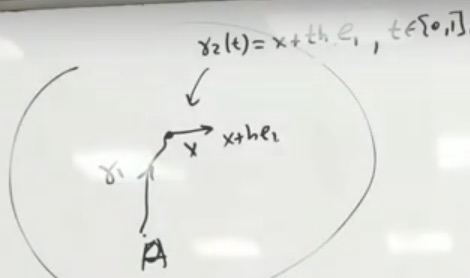 γ₂(t) = x + t h e₁, t ∈ [0,1]
x x+he₁
γ₁
A